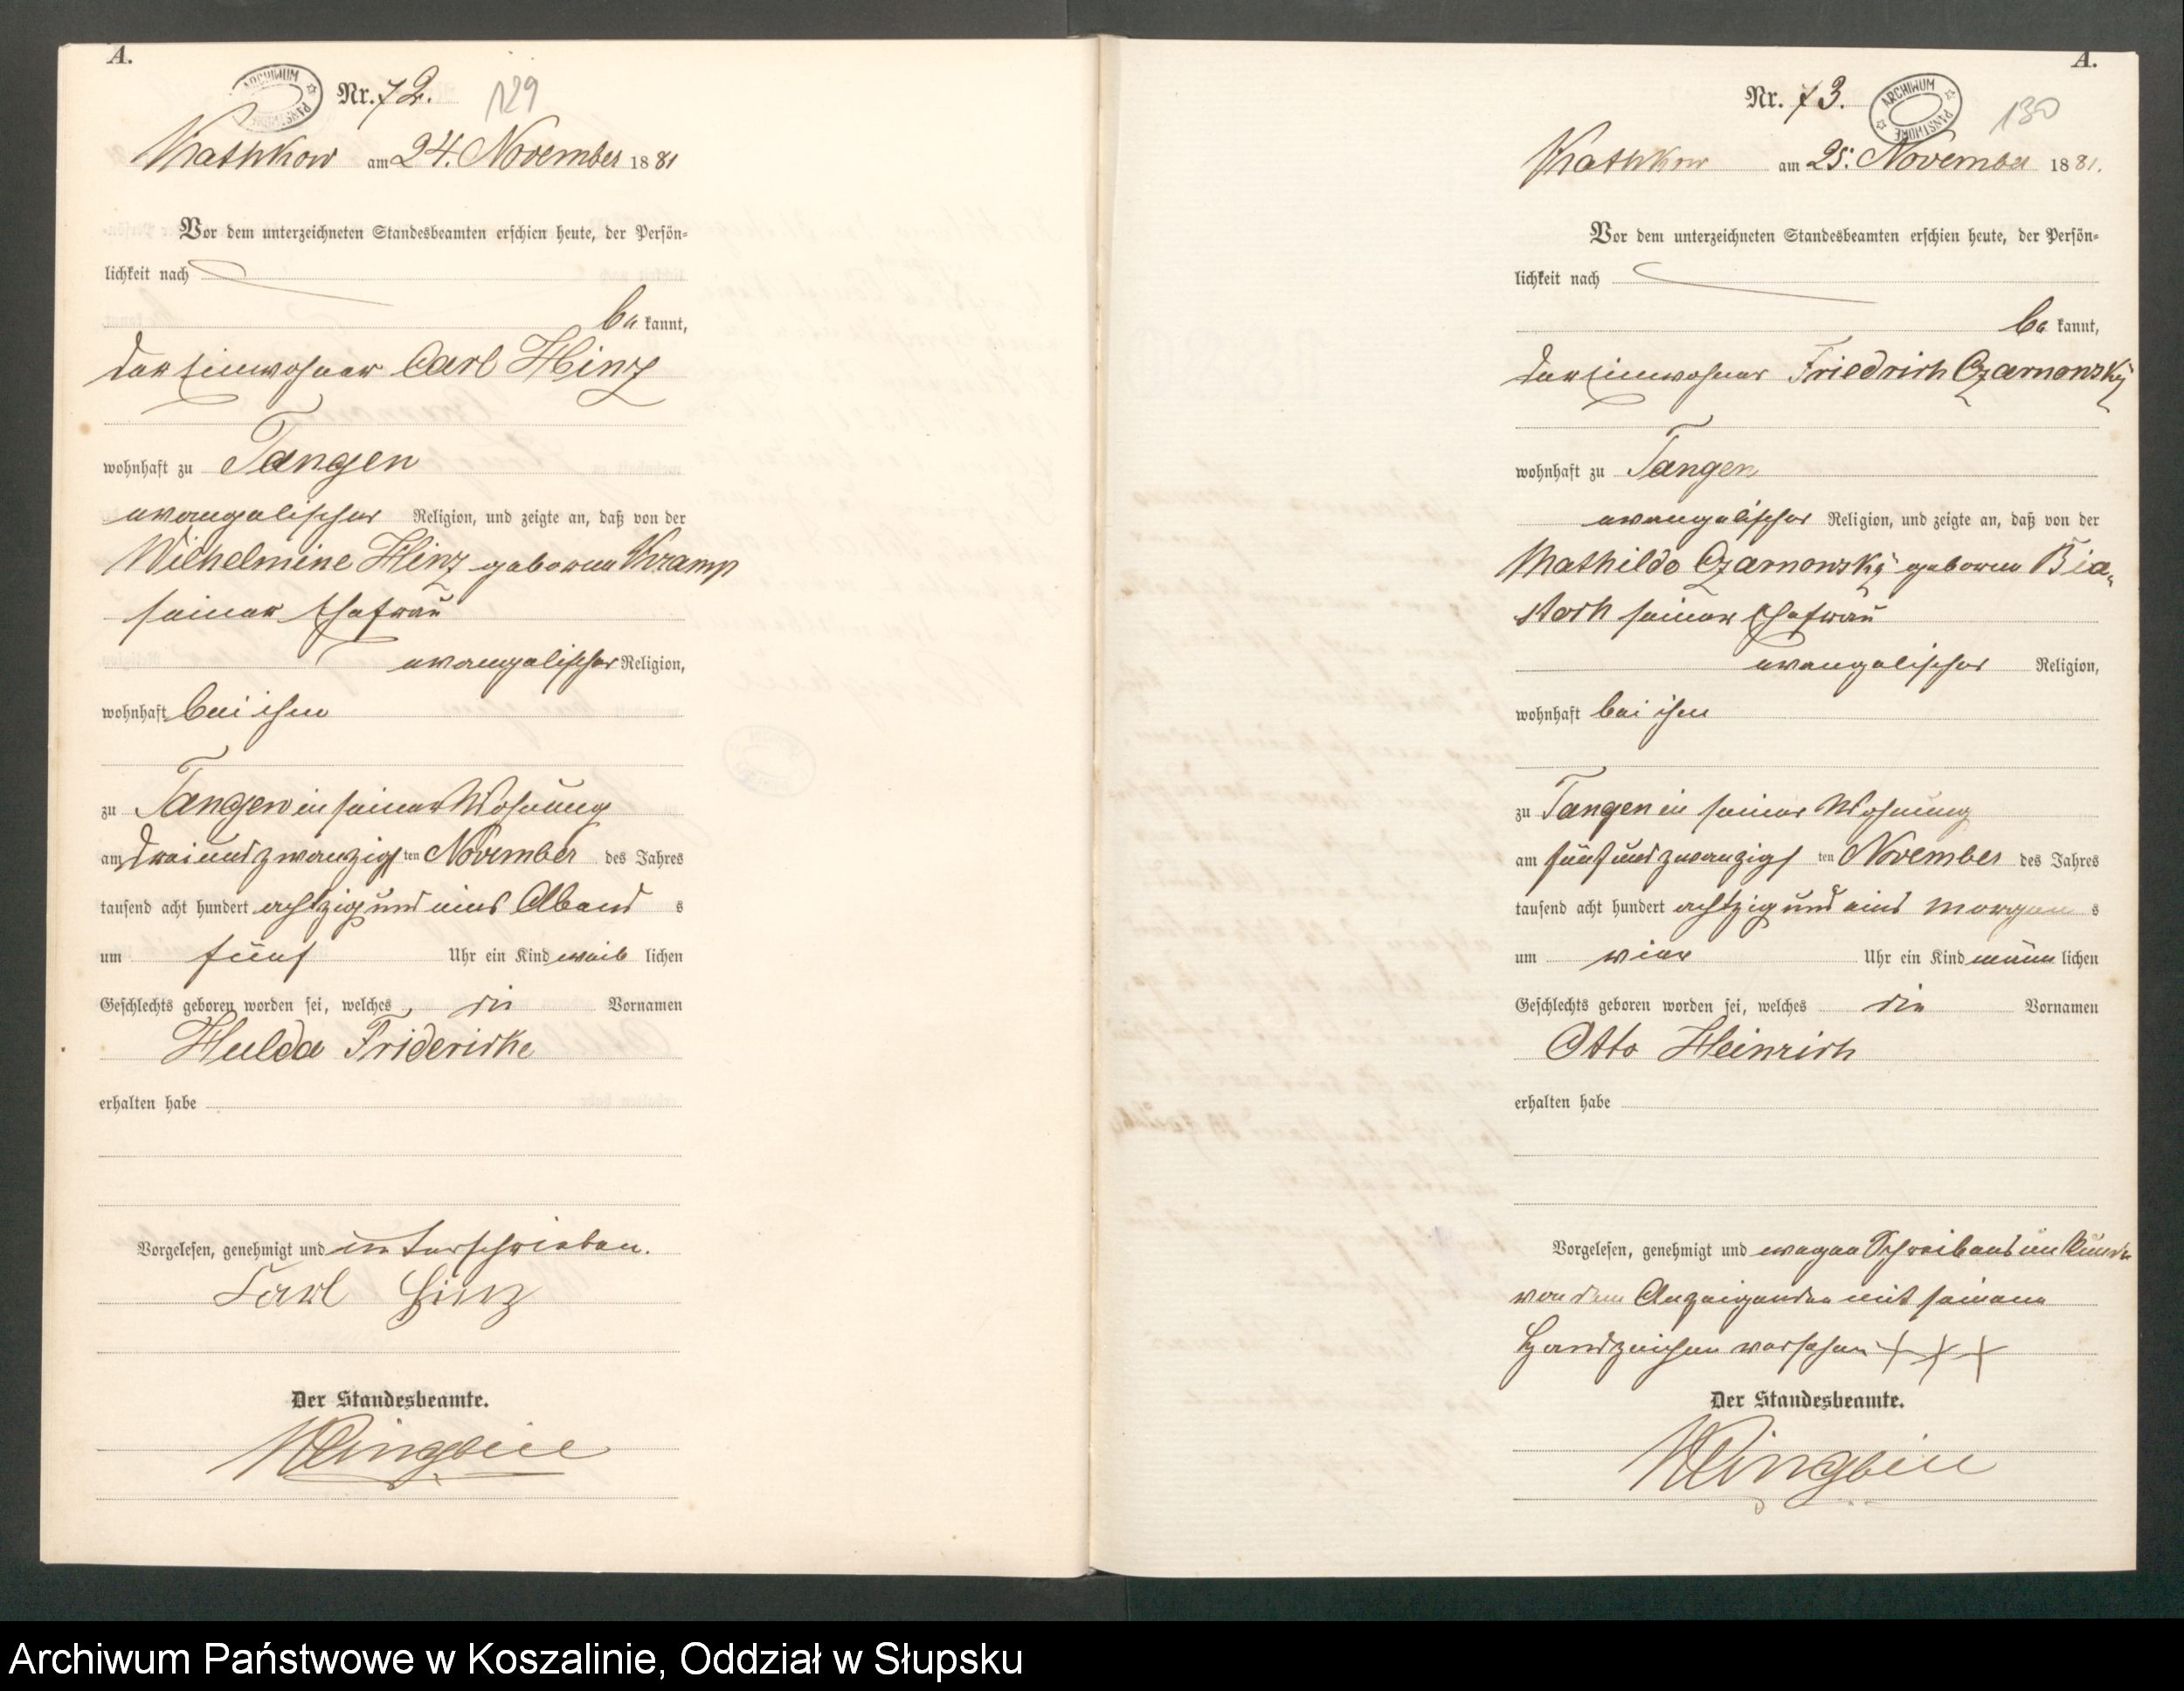 A.
ARCHIWUM PAŃSTWOWE
Nr. 72.
129
Kathkow am 24. November 1881
Vor dem unterzeichneten Standesbeamten erschien heute, der Persön=
lichkeit nach
be kannt,
der Einwohner Carl Hinz
wohnhaft zu Tangen
evangelischer Religion, und zeigte an, daß von der
Wilhelmine Hinz geborene Kramp
seiner Ehefrau
evangelischer Religion,
wohnhaft bei ihm
zu Tangen in seiner Wohnung
am dreiundzwanzigsten November des Jahres
tausend acht hundert achtzig und eins Abend s
um fünf Uhr ein Kind weib lichen
Geschlechts geboren worden sei, welches die Vornamen
Hulda Fridericke
erhalten habe
Vorgelesen, genehmigt und unterschrieben.
Carl Hinz
Der Standesbeamte.
Klingbeil
A.
Nr. 73.
ARCHIWUM PAŃSTWOWE
130
Kathkow am 25. November 1881.
Vor dem unterzeichneten Standesbeamten erschien heute, der Persön=
lichkeit nach
be kannt,
der Einwohner Friedrich Czarnowsky
wohnhaft zu Tangen
evangelischer Religion, und zeigte an, daß von der
Mathilde Czarnowsky geborene Bia=
stoch seiner Ehefrau
evangelischer Religion,
wohnhaft bei ihm
zu Tangen in seiner Wohnung
am fünfundzwanzigsten November des Jahres
tausend acht hundert achtzig und eins Morgen s
um vier Uhr ein Kind männ lichen
Geschlechts geboren worden sei, welches die Vornamen
Otto Heinrich
erhalten habe
Vorgelesen, genehmigt und wegen Schreibensunkunde
von dem Anzeigenden mit seinem
Handzeichen versehen +++
Der Standesbeamte.
Klingbeil
Archiwum Państwowe w Koszalinie, Oddział w Słupsku